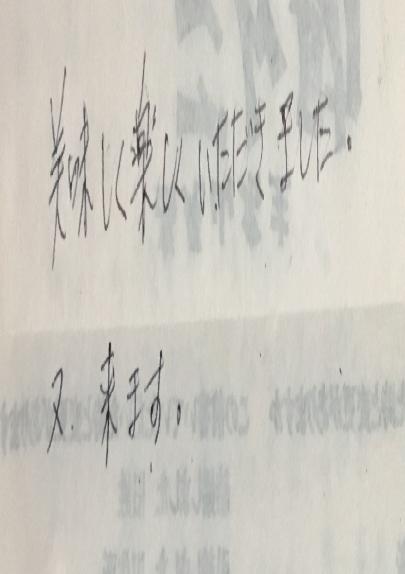 美味しく楽しくいただきました。
又、来ます。